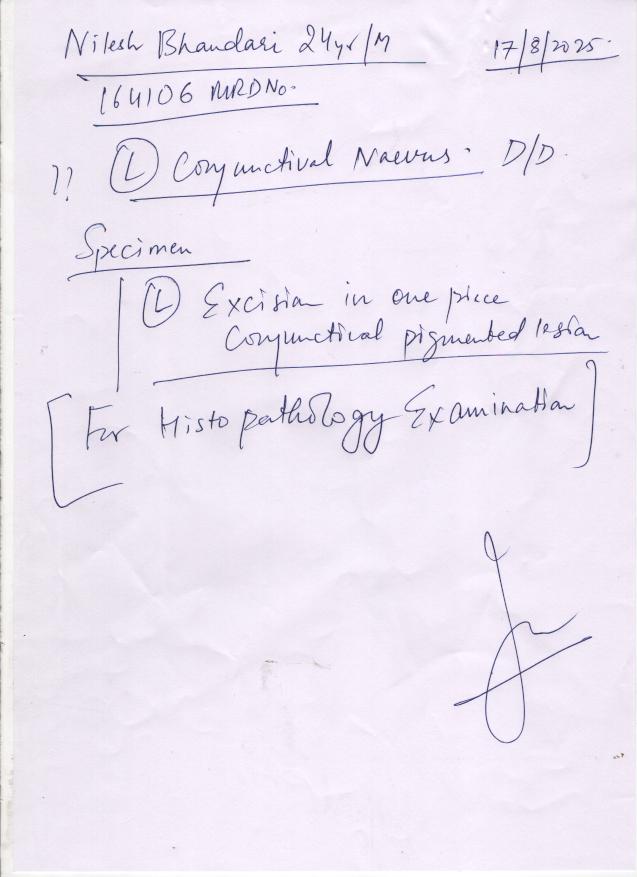 Nilesh Bhandari 24yr/M 17/8/2025.
164106 MRDNo.
?? (L) Conjunctival Naevus. D/D.
Specimen
(L) Excision in one piece
Conjunctival pigmented lesion
[For Histopathology Examination]